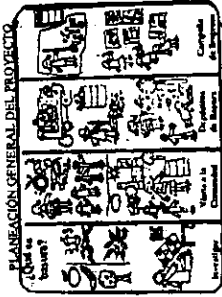 PLANEACIÓN GENERAL DEL PROYECTO
¿Qué es
basura?
Visita a la
Comunidad
Depósitos
de Basura
Campaña